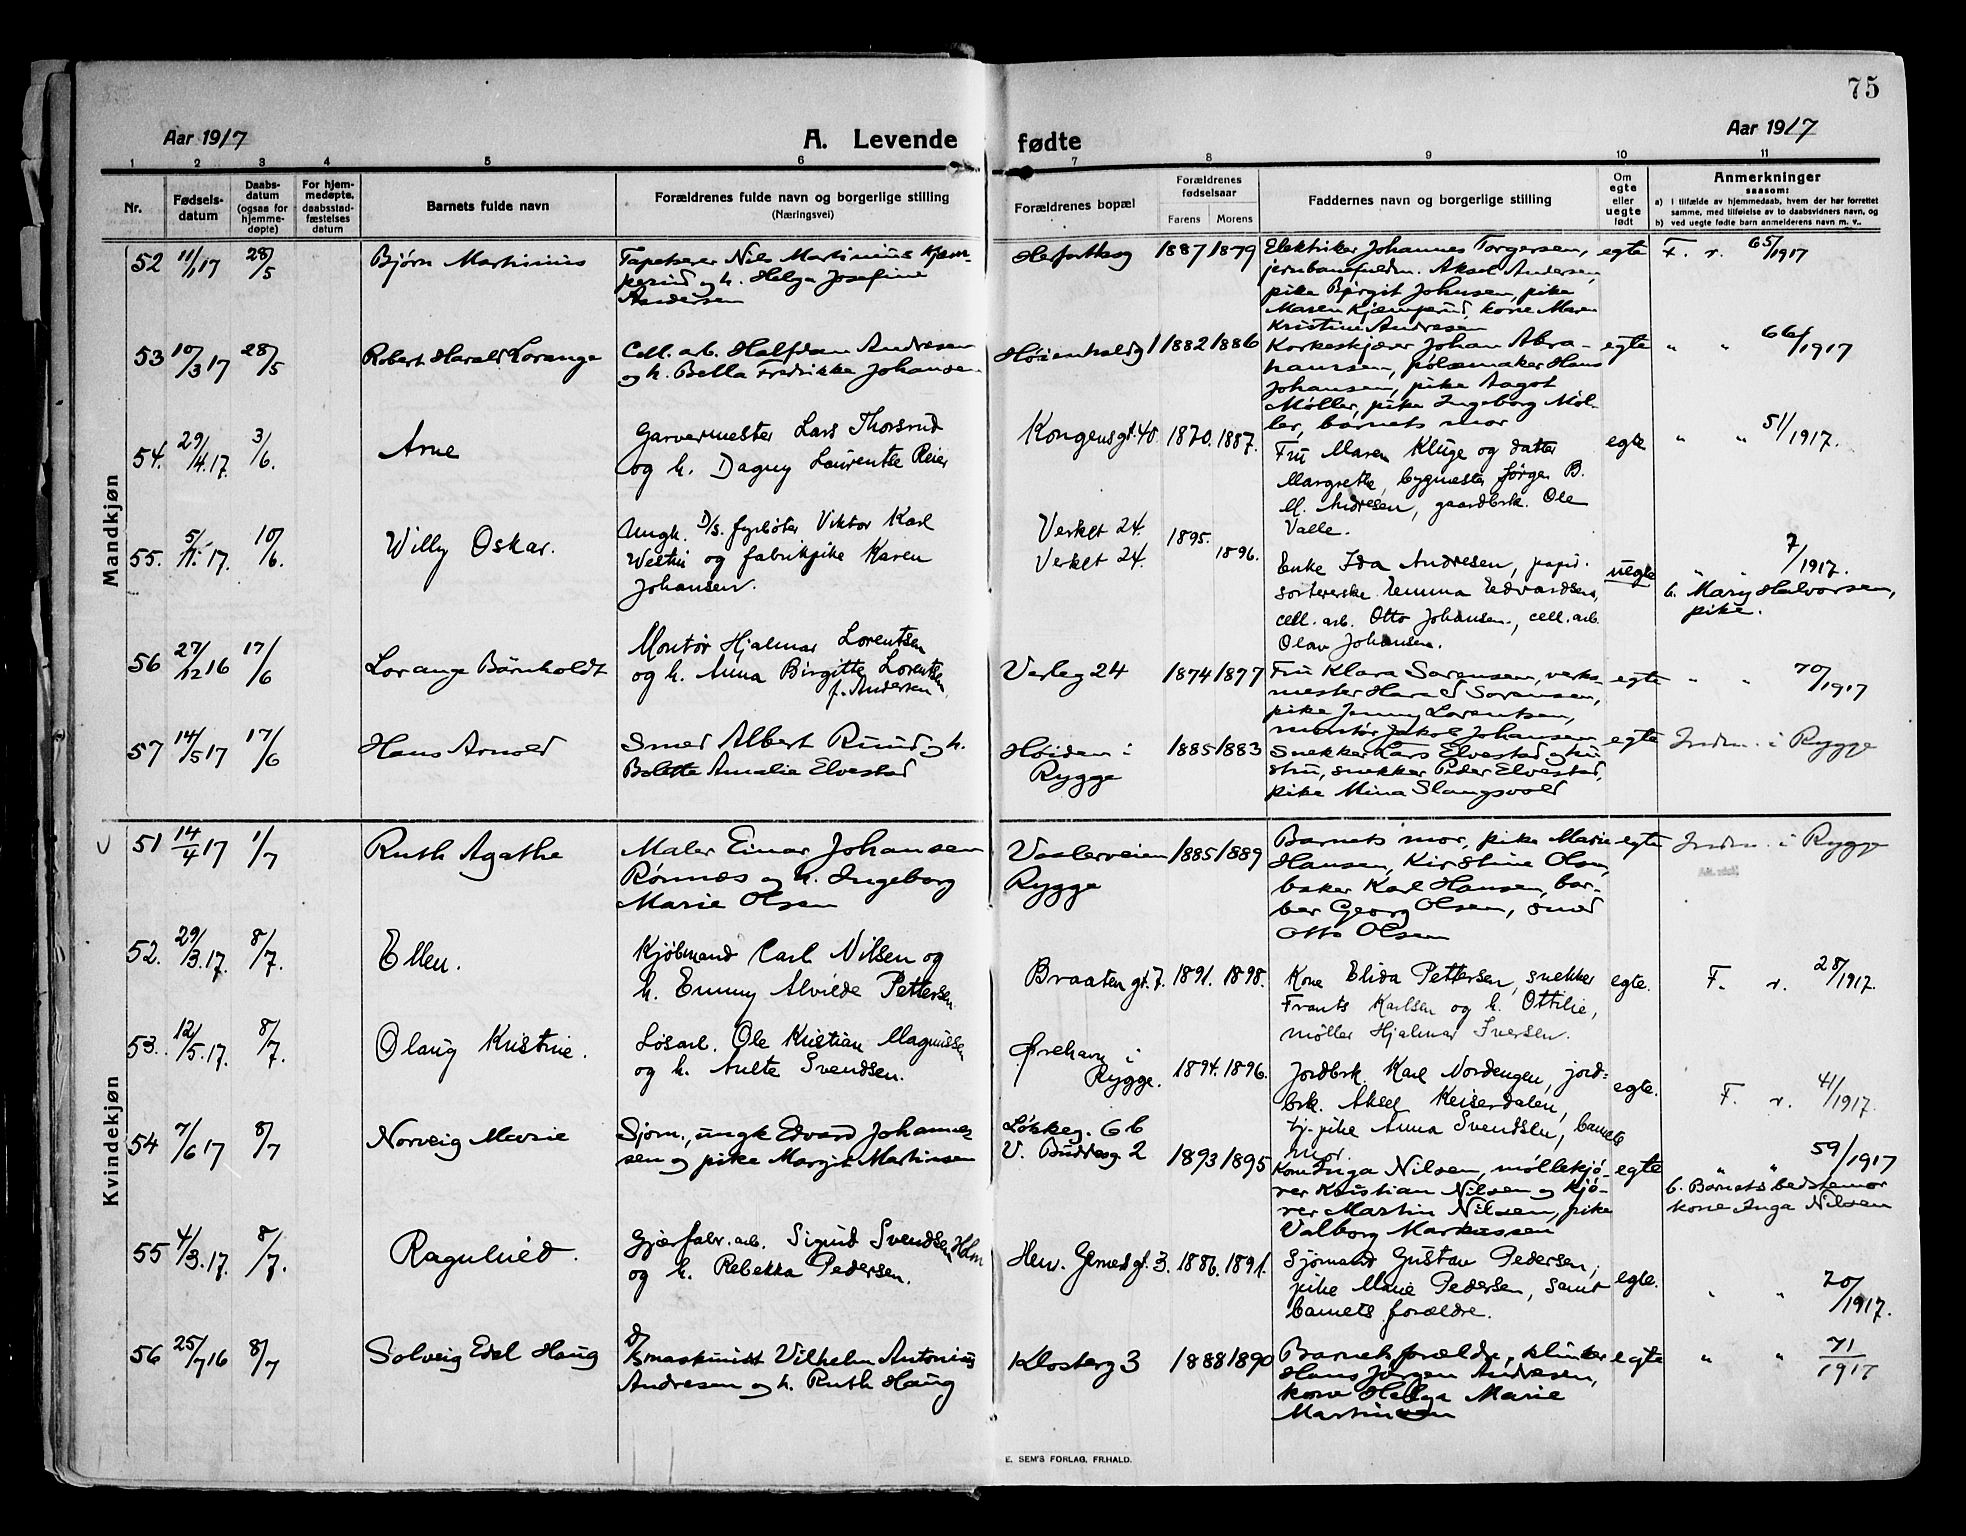 75
Aar 1917
A. Levende fødte
Aar 1917
1 2 3 4 5 6 7 8 9 10 11
Nr.
Fødsels-
datum
Daabs-
datum
(ogsaa for
hjemme-
døpte)
For hjem-
medøpte,
daabsstad-
fæstelses
datum
Barnets fulde navn
Forældrenes fulde navn og borgerlige stilling
(Næringsvei)
Forældrenes bopæl
Forældrenes
fødselsaar
Farens Morens
Faddernes navn og borgerlige stilling
Om
egte
eller
uegte
født
Anmerkninger
saasom:
a) I tilfælde av hjemmedaab, hvem der har forrettet
samme, med tilføielse av to daabsvidners navn, og
b) ved uegte fødte barn anmelderens navn m. v..
Mandkjøn
52 11/1 17 28/5 Bjørn Martinius
Tapetserer Nils Martinius Kjæm-
perud og h. Helga Josefine
Andersen
1887 1879
Elektriker Johannes Torgersen,
jernbanefuldm. Aksel Andersen,
pike Birgit Johnsen, pike
Maren Kjæmperud, kone Maren
Kristine Andresen
egte
F. r. 65/1917
53 10/3 17 28/5 Robert Harald Lorange
Cell. arb. Halfdan Andresen
og h. Bella Fredrikke Johansen
1882 1886
Korkeskjærer Johan Abra-
hamsen, pølsemaker Hans
Johansen, pike Aagot
Møller, pike Ingeborg Møl-
ler, barnets mor
egte
" " 66/1917
54. 29/4 17. 3/6. Arne
Garvermester Lars Thorsrud
og h. Dagny Laurentse Reier
Kongensgt. 40. 1870. 1887.
Fru Maren Kluge og datter
Margrethe, bygmester Jørgen B.
M. Andresen, gaardbrk. Ole
Valle.
egte
" " 51/1917.
55. 5/1. 17. 10/6. Willy Oskar.
Ungk. D/s. fyrbøter Viktor Karl
Westin og fabrikpike Karen
Johansen.
Verket 24.
Verket 24.
1895.
1896.
Enke Ida Andresen, papir-
sortererske Emma Edvardsen,
cell. arb. Otto Johansen, cell. arb.
Olav Johansen.
uegte
7/1917.
b. Mary Halvorsen,
pike.
56 27/12 16 17/6 Lorange Børnholdt
Montør Hjalmar Lorentsen
og h. Anna Birgitte Lorentsen
f. Andersen
24 1874 1877
Fru Klara Sørensen, verks-
mester Harald Sørensen,
pike Jenny Lorentsen,
montør Jakob Johansen
egte
" " 70/1917
57 14/5 17 17/6 Hans Arnold
Smed Albert Ruud og h.
Bolette Amalie Elvestad
Høiden i
Rygge
1885 1883
Snekker Lars Elvestad og hu-
stru, snekker Peder Elvestad,
pike Mina Slangsvold
egte
Indm. i Rygge
Kvindekjøn
51 14/4 17 1/7 Ruth Agathe
Maler Einar Johansen
Rønnes og h. Ingeborg
Marie Olsen
Vaalerveien
Rygge
1885 1889
Barnets mor, pike Marie
Hansen, Kirstine Olsen,
baker Karl Hansen, bar-
ber Georg Olsen, smed
Otto Olsen
egte
Indm. i Rygge
52. 29/3. 17. 8/7. Ellen.
Kjøbmand Carl Nilsen og
h. Emmy Alvilde Pettersen.
Braatengt. 7. 1891. 1898.
Kone Elida Pettersen, snekker
Frants Karlsen og h. Ottilie,
møller Hjalmar Iversen.
egte.
F. r. 28/1917.
53. 12/5. 17. 8/7. Olaug Kristine.
Løsarb. Ole Kristian Magnussen
og h. Anlte Svendsen.
Ørehavn i
Rygge.
1894. 1896.
Jordbrk. Karl Nordengen, jord-
brk. Aksel Keiserdalen,
tj. pike Anna Svendsen, barnets
mor.
egte.
F. r. 41/1917.
54 7/6 17 8/7 Norveig Marie
Sjøm., ungk Edvard Johannes-
sen og pike Margit Martinsen
Løkkeg. 6b
V. 2
1893 1895
Kone Inga Nilsen, møllekjø-
rer Kristian Nilsen og kjø-
rer Martin Nilsen, pike
Valborg Markussen
egte
" " 59/1917
b. Barnets bedstemor
kone Inga Nilsen
55 4/3. 17. 8/7. Ragnhild.
Gjærfabr. arb. Sigurd Svendsen Holm
og h. Rebekka Pedersen.
Hen. Gernesgt. 3. 1886. 1891.
Sjømand Gustav Pedersen,
pike Marie Pedersen, samt
barnets forældre.
egte.
" " 70/1917.
56 25/7 16 8/7 Solveig Edel Haug
D/s maskinist Vilhelm Antonius
Andresen og h. Ruth Haug
Klosterg 3 1888 1890
Barnets forældre, klinker
Hans Jørgen Andresen,
kone Helga Marie
Martinsen
egte
" " 71/1917
E. SEM'S FORLAG, FR.HALD.